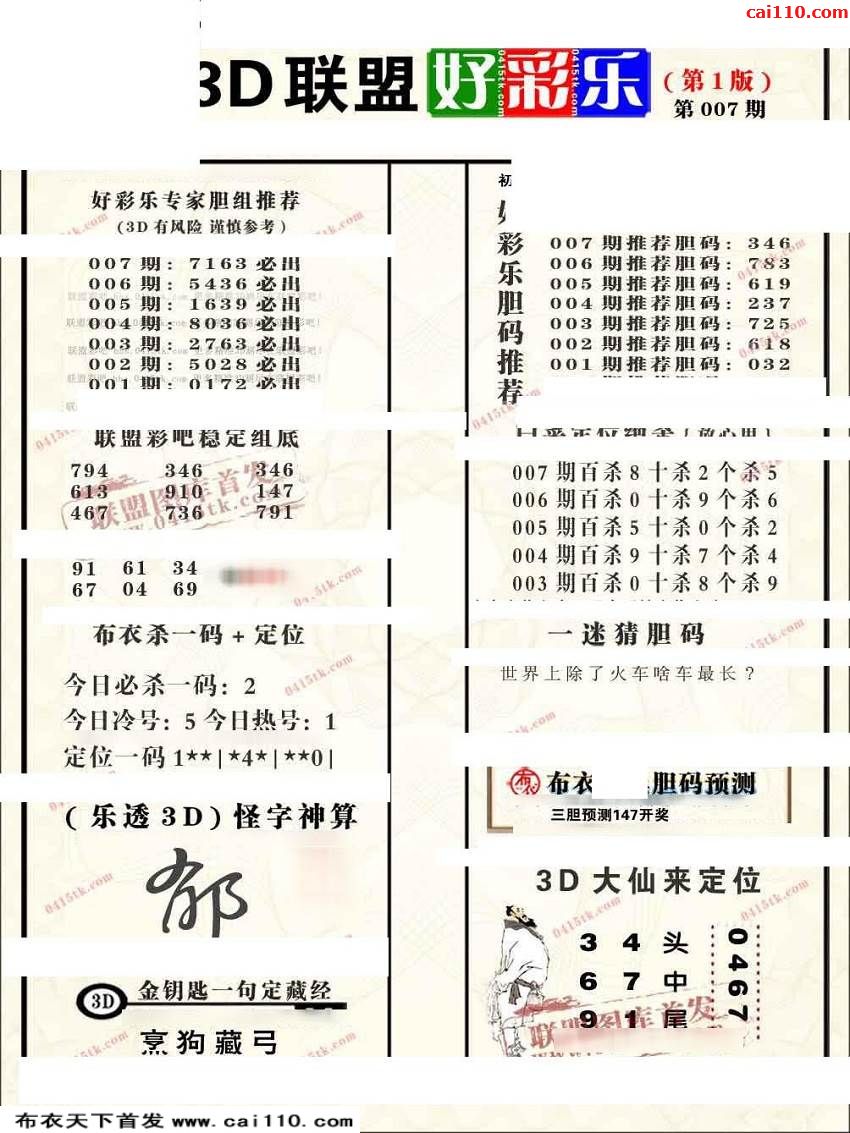 cai110.com
3D联盟好彩乐
(第1版)
第007期
好彩乐专家胆组推荐
(3D有风险 谨慎参考)
007期:7163必出
006期:5436必出
005期:1639必出
004期:8036必出
003期:2763必出
002期:5028必出
001期:0172必出
联盟彩吧稳定组底
794 346 346
613 910 147
467 736 791
91 61 34
67 04 69
布衣杀一码+定位
今日必杀一码:2
今日冷号:5 今日热号:1
定位一码 1**|*4*|**0|
(乐透3D)怪字神算
郁
3D 金钥匙一句定藏经
烹狗藏弓
初
好彩乐胆码推荐
007期推荐胆码:346
006期推荐胆码:783
005期推荐胆码:619
004期推荐胆码:237
003期推荐胆码:725
002期推荐胆码:618
001期推荐胆码:032
007期百杀8十杀2个杀5
006期百杀0十杀9个杀6
005期百杀5十杀0个杀2
004期百杀9十杀7个杀4
003期百杀0十杀8个杀9
一迷猜胆码
世界上除了火车啥车最长?
布衣 胆码预测
三胆预测147开奖
3D大仙来定位
3 4 头
6 7 中
9 1 尾
0467
联盟图库首发
www.0415tk.com
0415tk.com
布衣天下首发 www.cai110.com